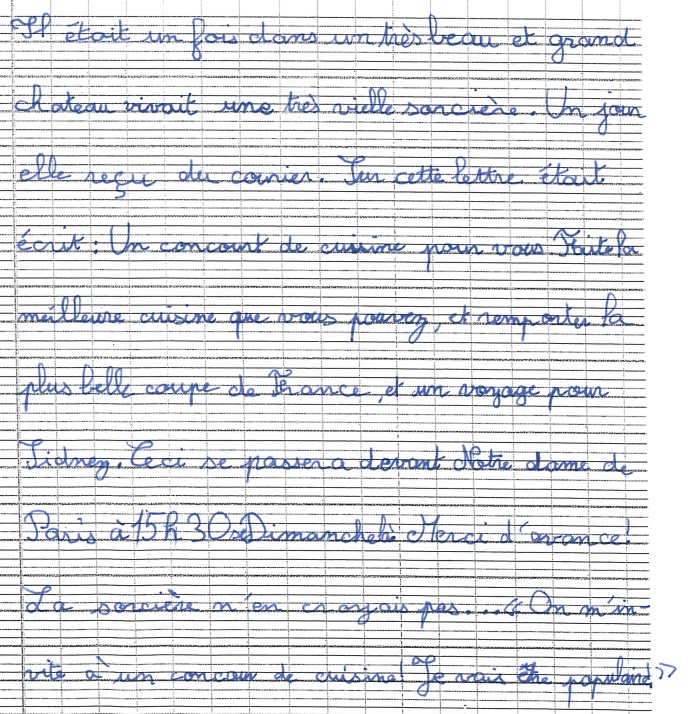 Il était un fois dans un très beau et grand
chateau vivait une très vielle sorcière. Un jour
elle reçu du courier. Sur cette lettre était
écrit : Un concourt de cuisine pour vous Faite la
meilleure cuisine que vous pouvez, et remporter la
plus belle coupe de France, et un voyage pour
Sidney. Ceci se passera devant Notre dame de
Paris à 15h30 Dimanche Merci d'avance!
La sorcière n'en croyais pas....« On m'in-
vite à un concour de cuisine! Je vais être »